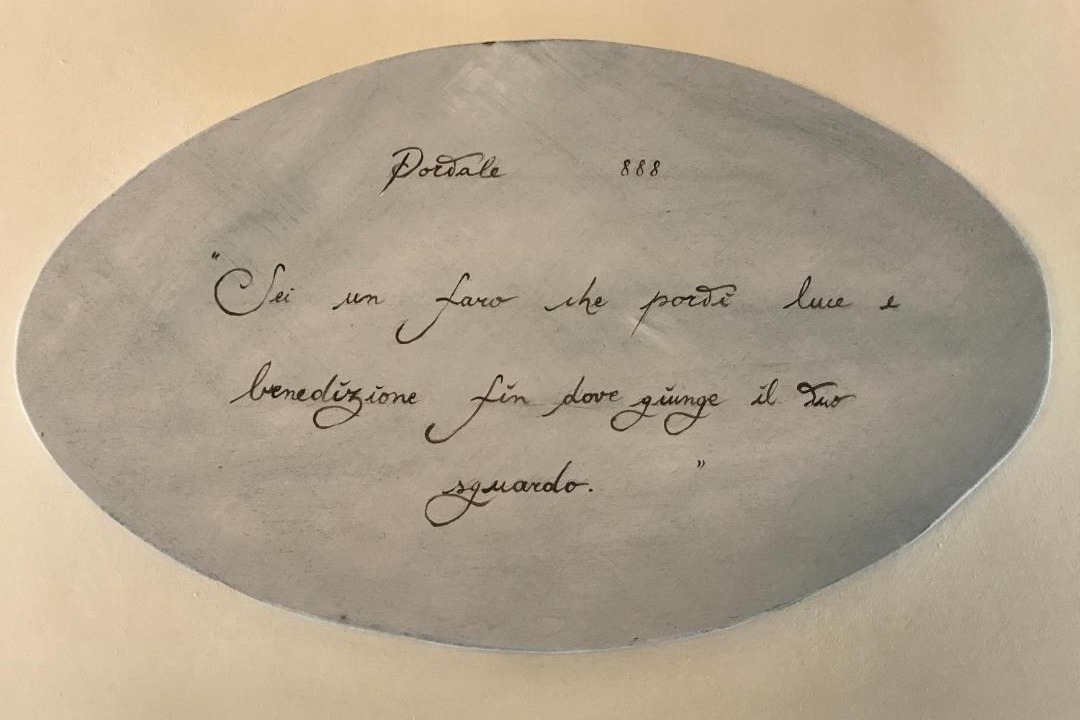 Portale 888
"Sei un faro che porti luce e
benedizione fin dove giunge il tuo
sguardo."